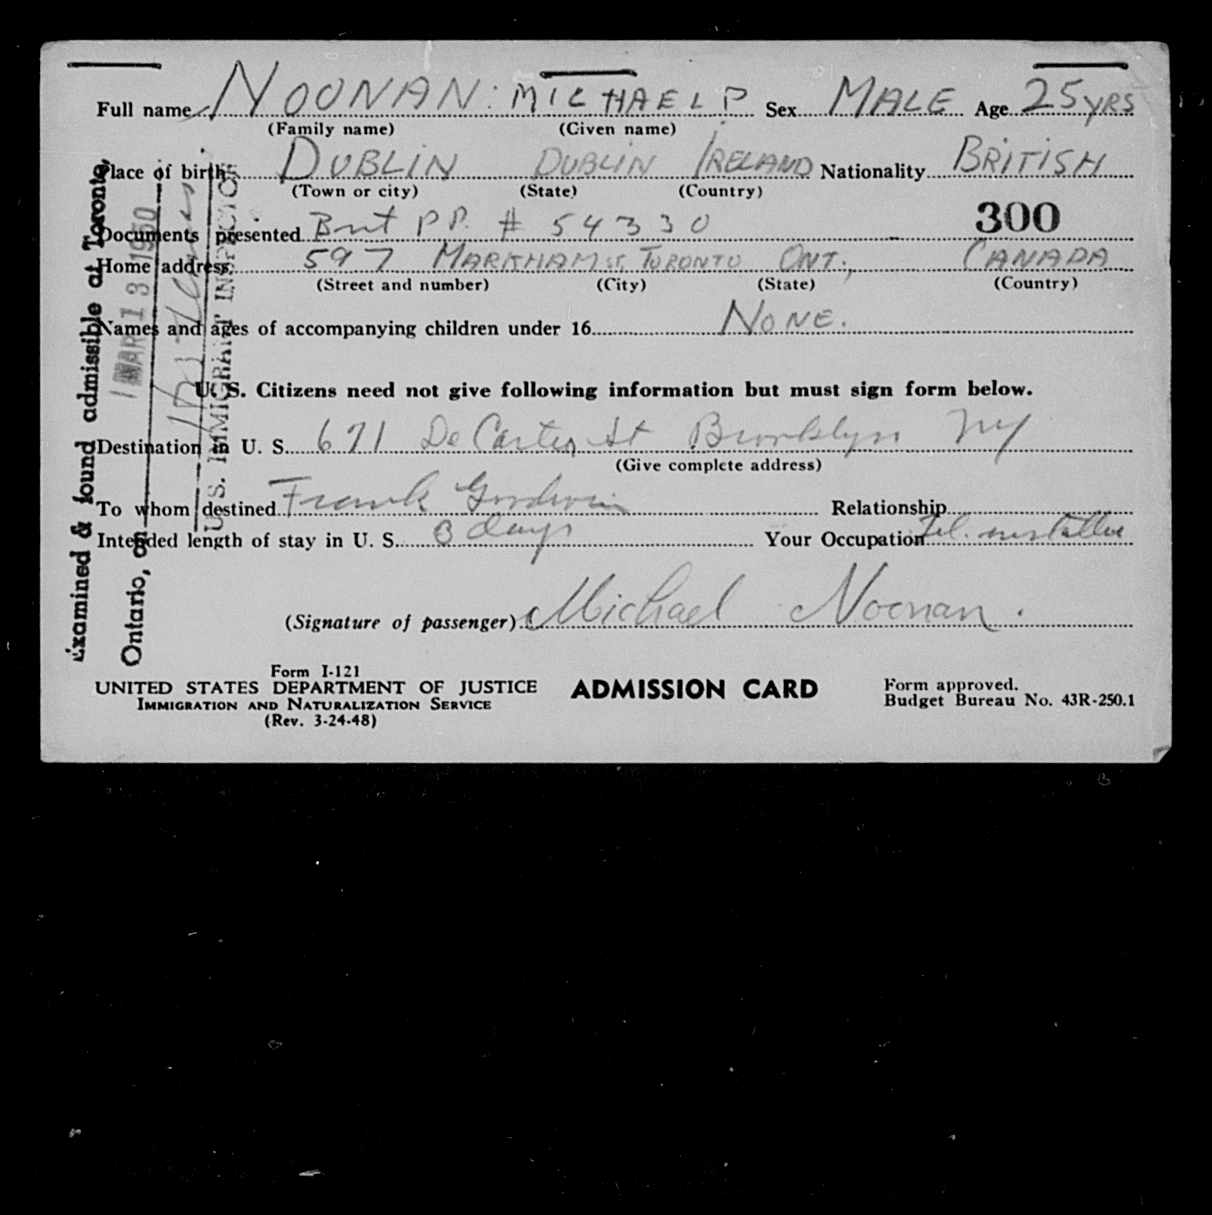 Full name NOONAN: MICHAEL P Sex MALE Age 25 YRS
(Family name) (Given name)
Place of birth DUBLIN DUBLIN IRELAND Nationality BRITISH
(Town or city) (State) (Country)
300
Documents presented Brit P.P. # 54330
Home address 597 MARKHAM ST. TORONTO ONT., CANADA
(Street and number) (City) (State) (Country)
Names and ages of accompanying children under 16 NONE.
U. S. Citizens need not give following information but must sign form below.
Destination in U. S. 671 De Cartes St Brooklyn NY
(Give complete address)
To whom destined Frank Goodwin Relationship
Intended length of stay in U. S. 3 days Your Occupation Tel. installer
(Signature of passenger) Michael Noonan.
Form I-121
UNITED STATES DEPARTMENT OF JUSTICE ADMISSION CARD Form approved.
IMMIGRATION AND NATURALIZATION SERVICE Budget Bureau No. 43R-250.1
(Rev. 3-24-48)
Examined & found admissible at Toronto,
Ontario, on MAR 13 1950
U. S. IMMIGRANT INSPECTOR